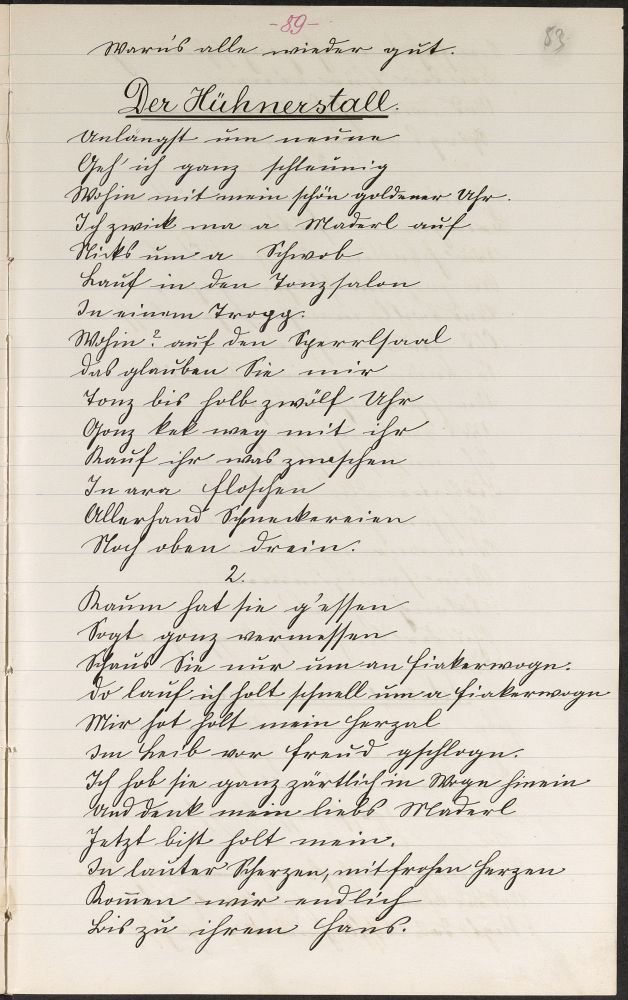 -89-
83
War's alle wieder gut.
Der Hühnerstall.
Unlängst um neune
Geh' ich ganz schleunig
Wohin mit mein schön goldener Uhr.
Ich zwick ma a Maderl auf
Nicks um a Schwob
Lauf in den Tonzsalon
In einem Trogg.
Wohin? auf den Sperrlsaal
das glauben Sie mir
Tonz bis holb zwölf Uhr
Gonz kek weg mit ihr
Kauf ihr was znaschen
In ara Floschen
Allerhand Schneckereien
Noch oben drein.
2.
Kaum hat sie g'essen
Sogt gonz vermessen
Schaus Sie nur um an Fiakerwogn.
Do lauf ich holt schnell um a Fiakerwogn
Mir hot holt mein Herzal
Im Leib vor Freud gschlogn.
Ich hob sie ganz zärtlich in Wogn hinein
Und denk mein liebs Maderl
Jetzt bist holt mein.
In lauter Scherzen, mit frohen Herzen
Kom̄en wir endlich
Bis zu ihrem Haus.